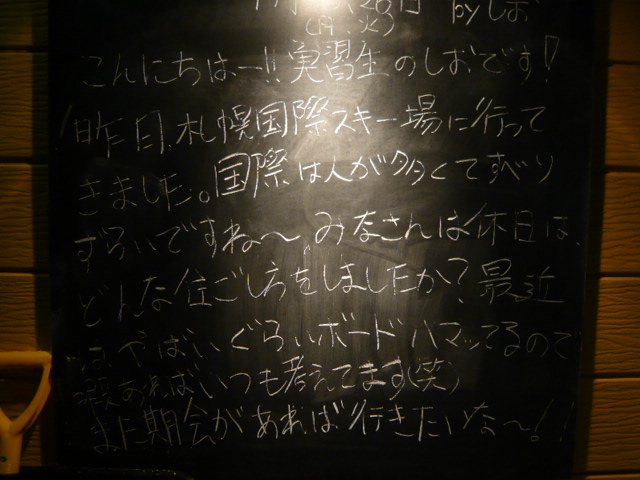 28日 by しお
(月 火)
こんにちはー!!実習生のしおです!
昨日、札幌国際スキー場に行って
きました。国際は人が多くてすべり
ずらいですね〜、みなさんは休日は、
どんな住ごし方をしましたか?最近
やばいぐらいボードハマッてるので
あればいつも考えてます(笑)
また期会があれば行きたいな〜!!